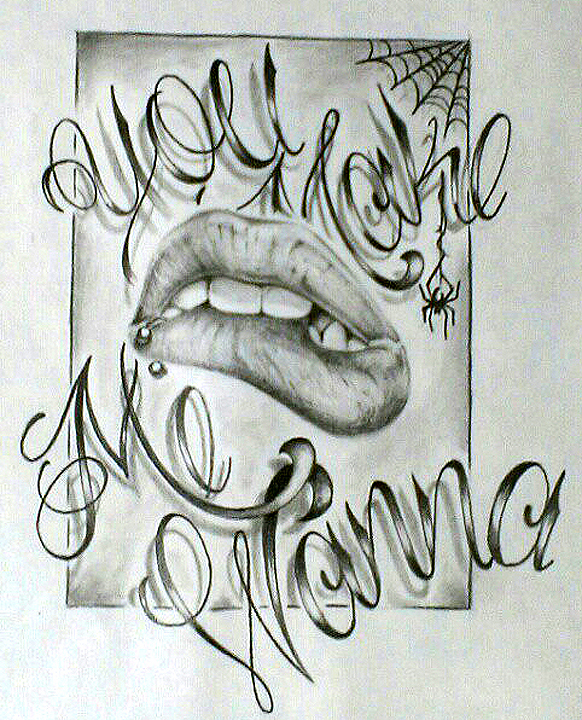 You Make
Me
Wanna